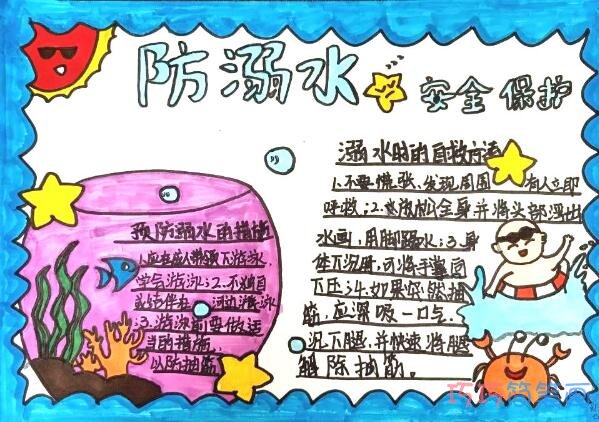 防溺水
安全保护
溺水时的自救方法
1.不要慌张,发现周围有人立即
呼救;2.放松全身,并将头部浮出
水面,用脚踢水;3.身
体下沉时,可将手掌向
下压;4.如果突然抽
筋,应深吸一口气
沉下腿,并快速将腿
解除抽筋。
预防溺水的措施
1.应在成人带领下游泳,
学会游泳;2.不独自
或结伴去河边游泳
;3.游泳前要做适
当的措施,
以防抽筋
巧巧简笔画